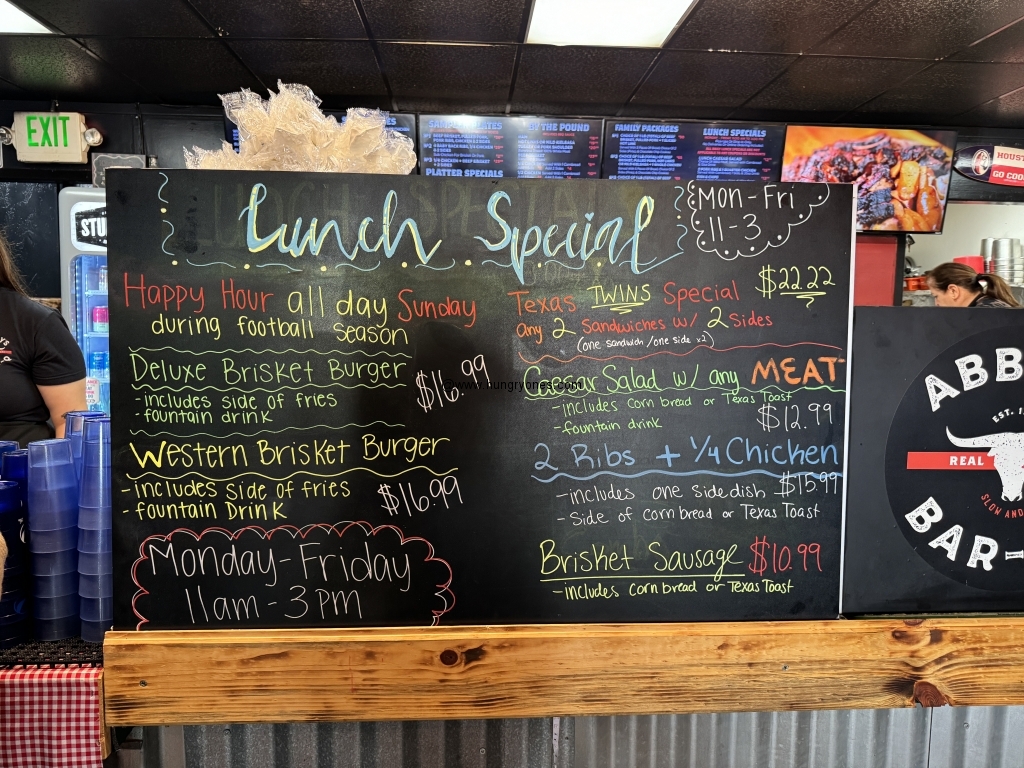 EXIT
PLATTER SPECIALS
BY THE POUND
FAMILY PACKAGES
LUNCH SPECIALS
HOUST
GO COO
STU
Lunch Special
Mon-Fri
11-3
Happy Hour all day Sunday
during football season
Deluxe Brisket Burger
$16.99
-includes side of fries
-fountain drink
Western Brisket Burger
-includes side of fries
-fountain Drink
$16.99
Monday-Friday
11am-3pm
Texas TWINS Special $22.22
any 2 Sandwiches w/ 2 Sides
(one sandwich/one side x2)
www.hungryones.com
Caesar Salad w/ any MEAT
-includes corn bread or Texas Toast
-fountain drink
$12.99
2 Ribs + 1/4 Chicken
-includes one sidedish $15.99
-Side of corn bread or Texas Toast
Brisket Sausage $10.99
-includes corn bread or Texas Toast
ABB
EST. 1
REAL
SLOW AND
BAR-